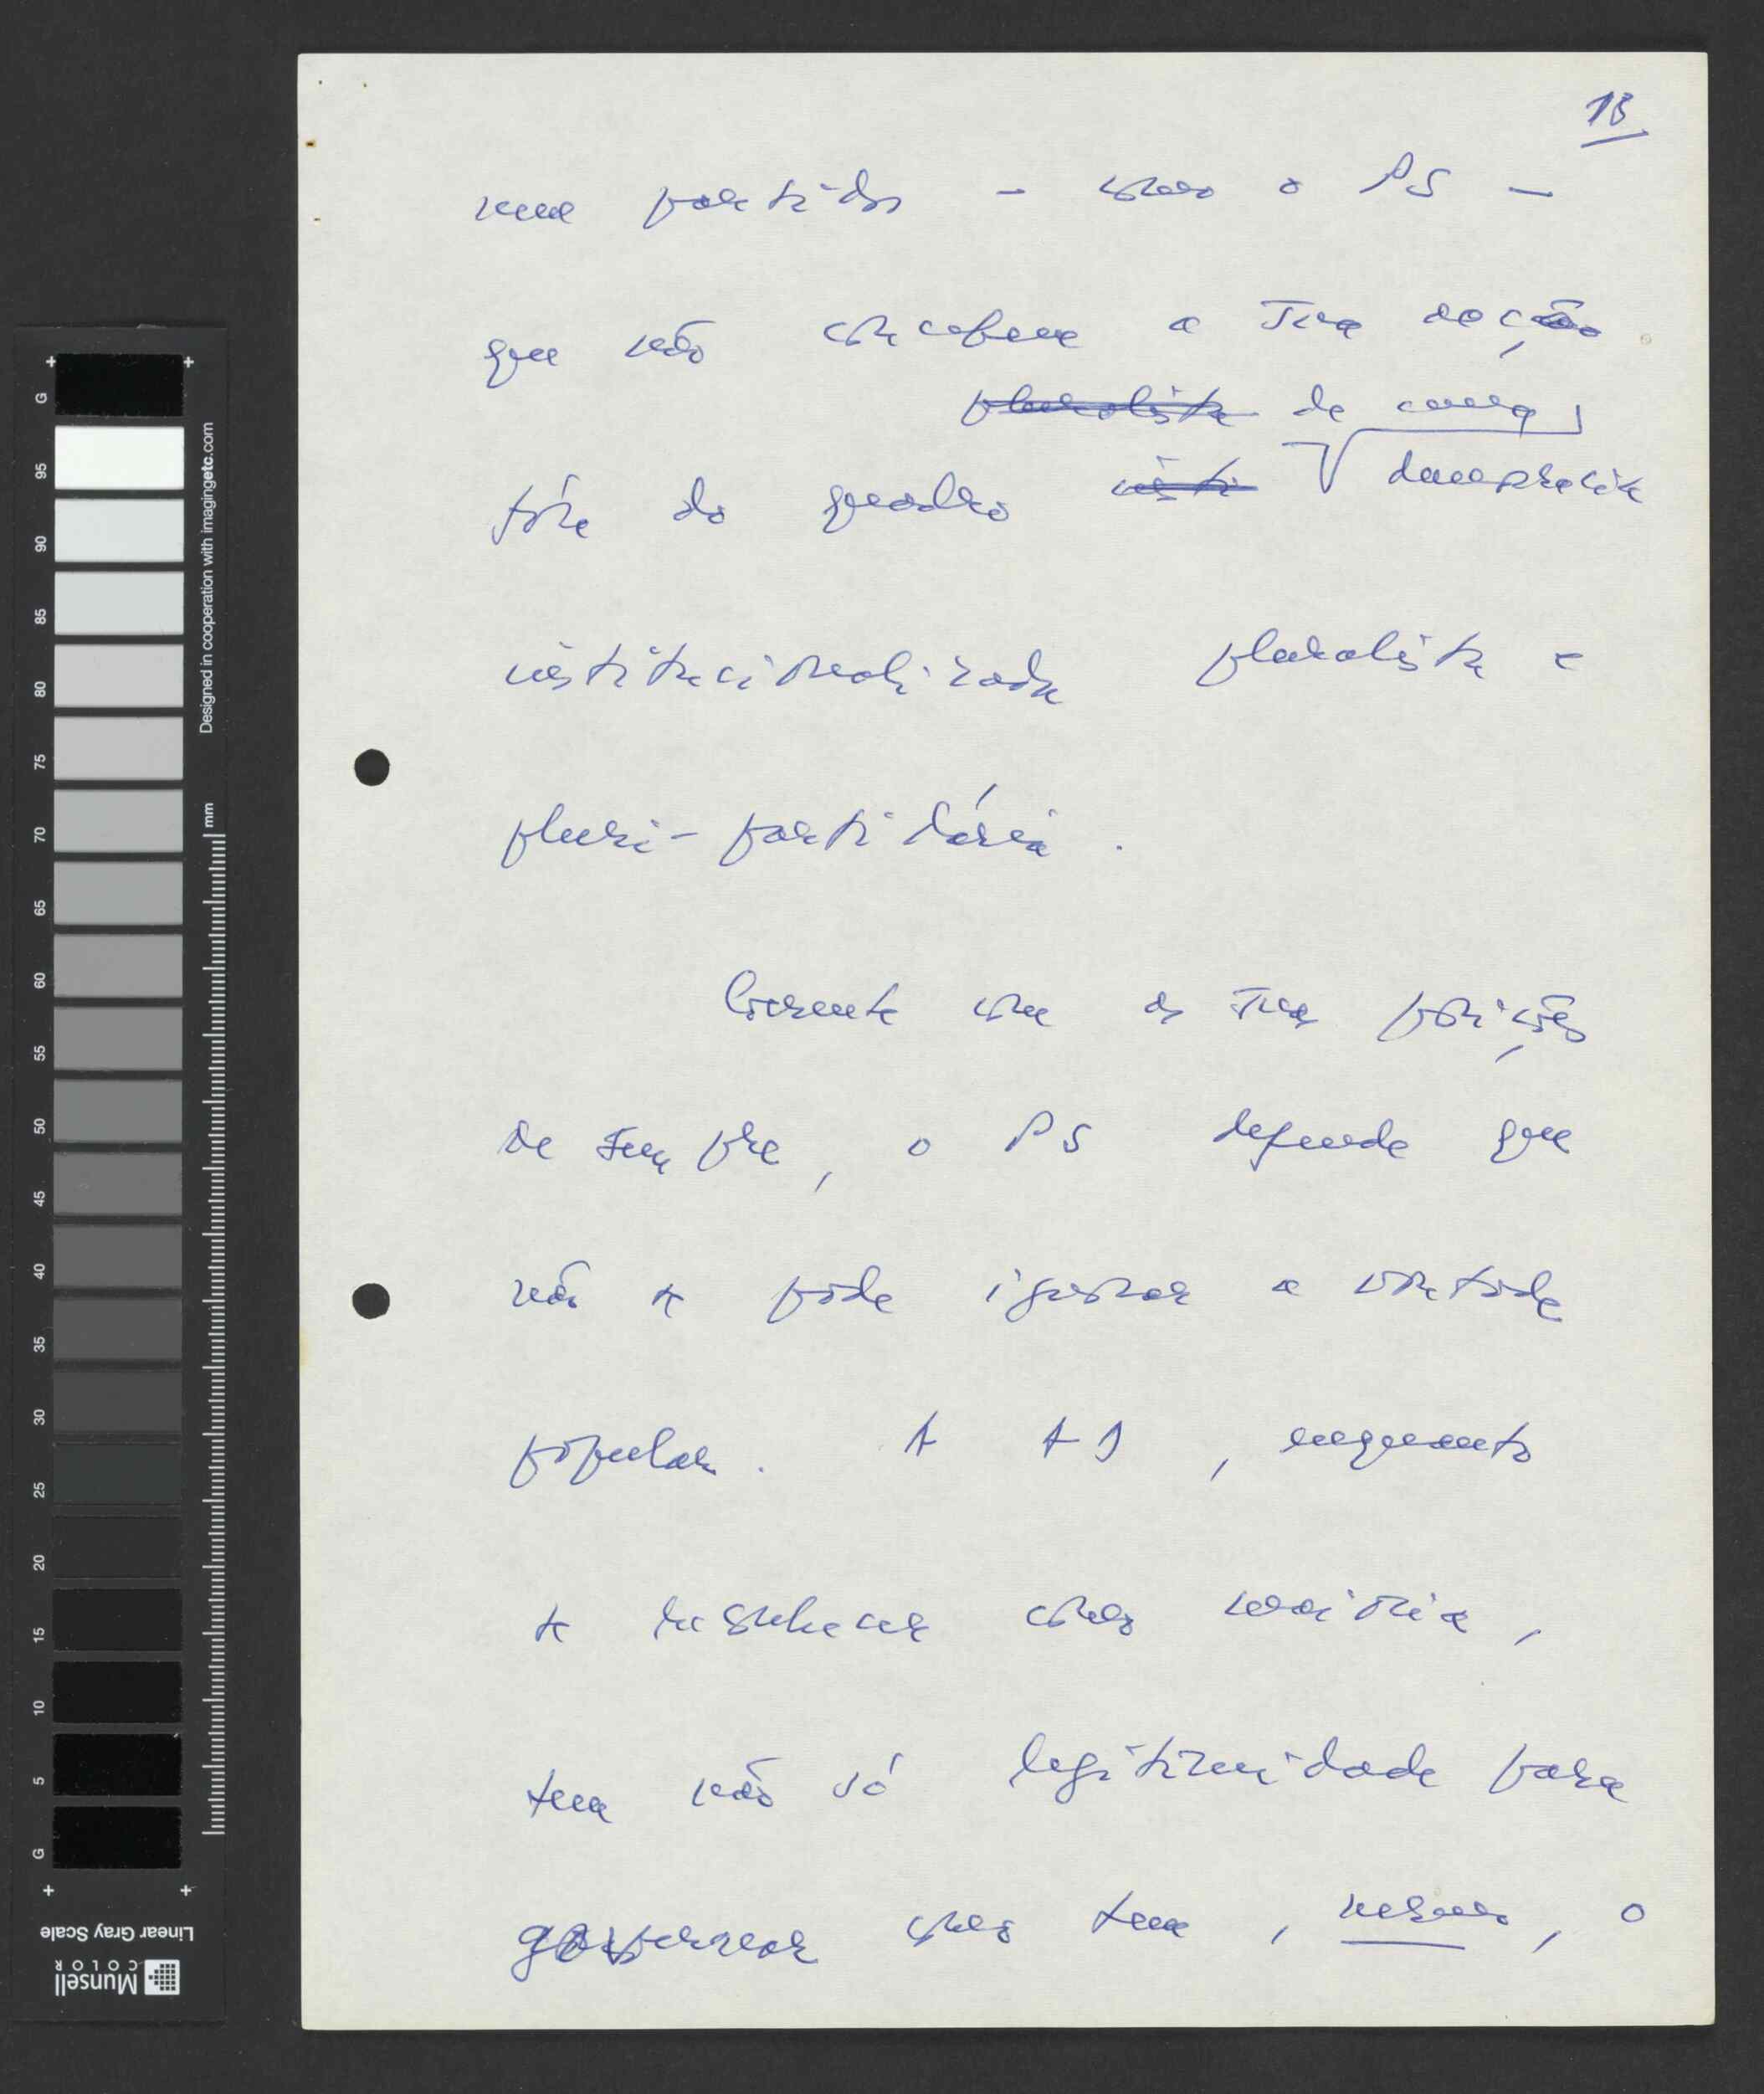 13
num partido - como o PS -
que não concebeu a sua acção
pluralista de uma
fora do quadro insti democracia
institucionalizada pluralista e
pluri-partidária.
Coerente com as suas posições
de sempre, o PS defende que
não se pode ignorar a vontade
popular. A AD, enquanto
se mantiver como maioria,
tem não só legitimidade para
governar como tem, mesmo, o
G 95 90 85 80 75 70 65 60 55 50 45 40 35 30 25 20 15 10 5 G
Designed in cooperation with imagingetc.com
mm
Linear Gray Scale
Munsell
COLOR